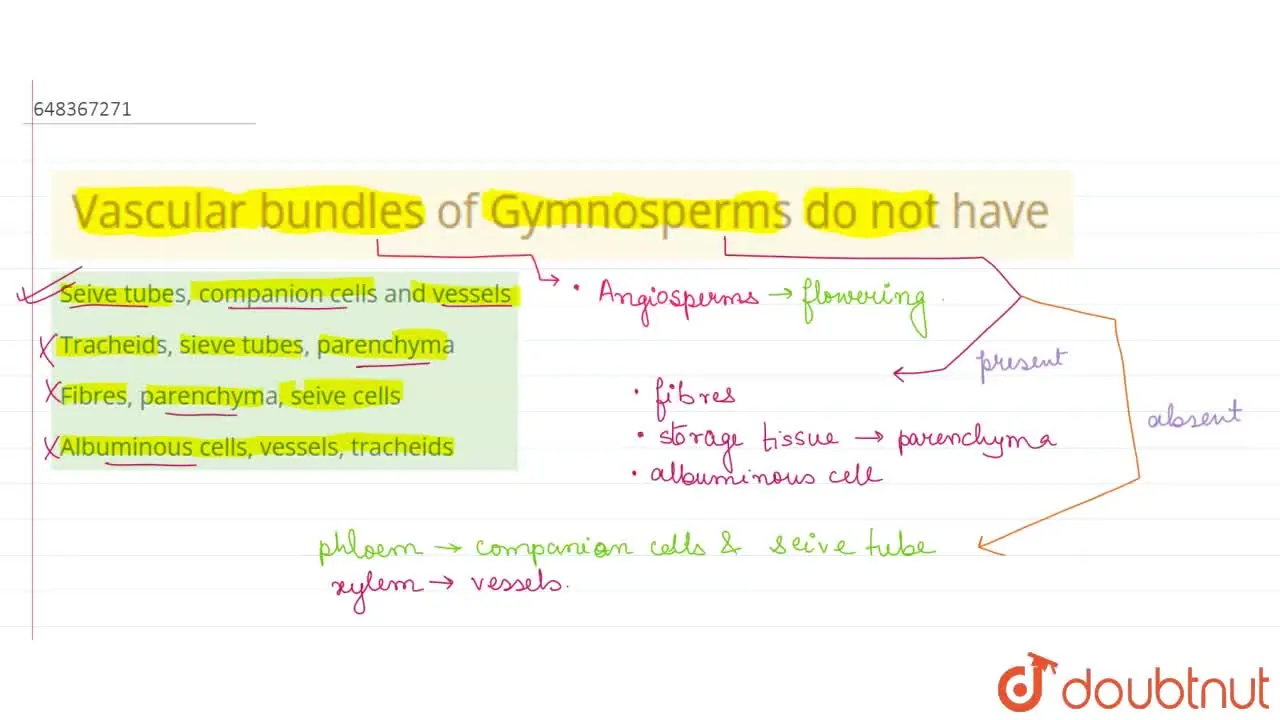 648367271
Vascular bundles of Gymnosperms do not have
Seive tubes, companion cells and vessels
Tracheids, sieve tubes, parenchyma
Fibres, parenchyma, seive cells
Albuminous cells, vessels, tracheids
• Angiosperms → flowering.
present
absent
• fibres
• storage tissue → parenchyma
• albuminous cell
phloem → companion cells & seive tube
xylem → vessels.
doubtnut